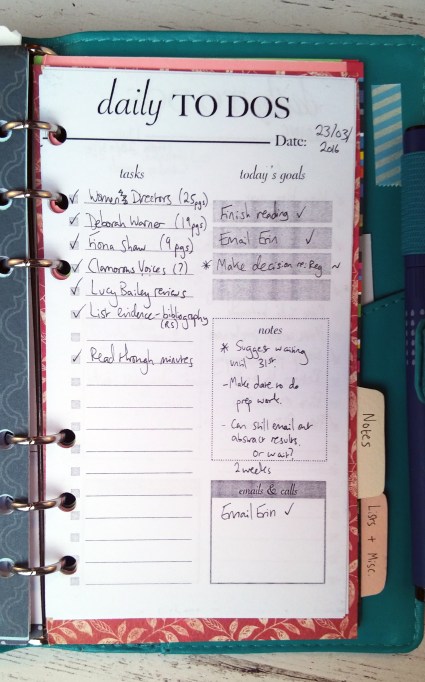 daily TO DOS
Date: 23/03/
2016
tasks
✓ Women & Directors (25pgs)
✓ Deborah Warner (19pgs)
✓ Fiona Shaw (9pgs)
✓ Clamorous Voices (?)
✓ Lucy Bailey reviews
✓ List evidence - bibliography
(RS)
✓ Read through minutes
today's goals
Finish reading ✓
Email Erin ✓
* Make decision re: Reg ~
notes
* Suggest waiting
until 31st.
- Make date to do
prep work.
- Can still email out
abstract results,
or wait?
2 weeks
emails & calls
Email Erin ✓
Notes
Lists + Misc.